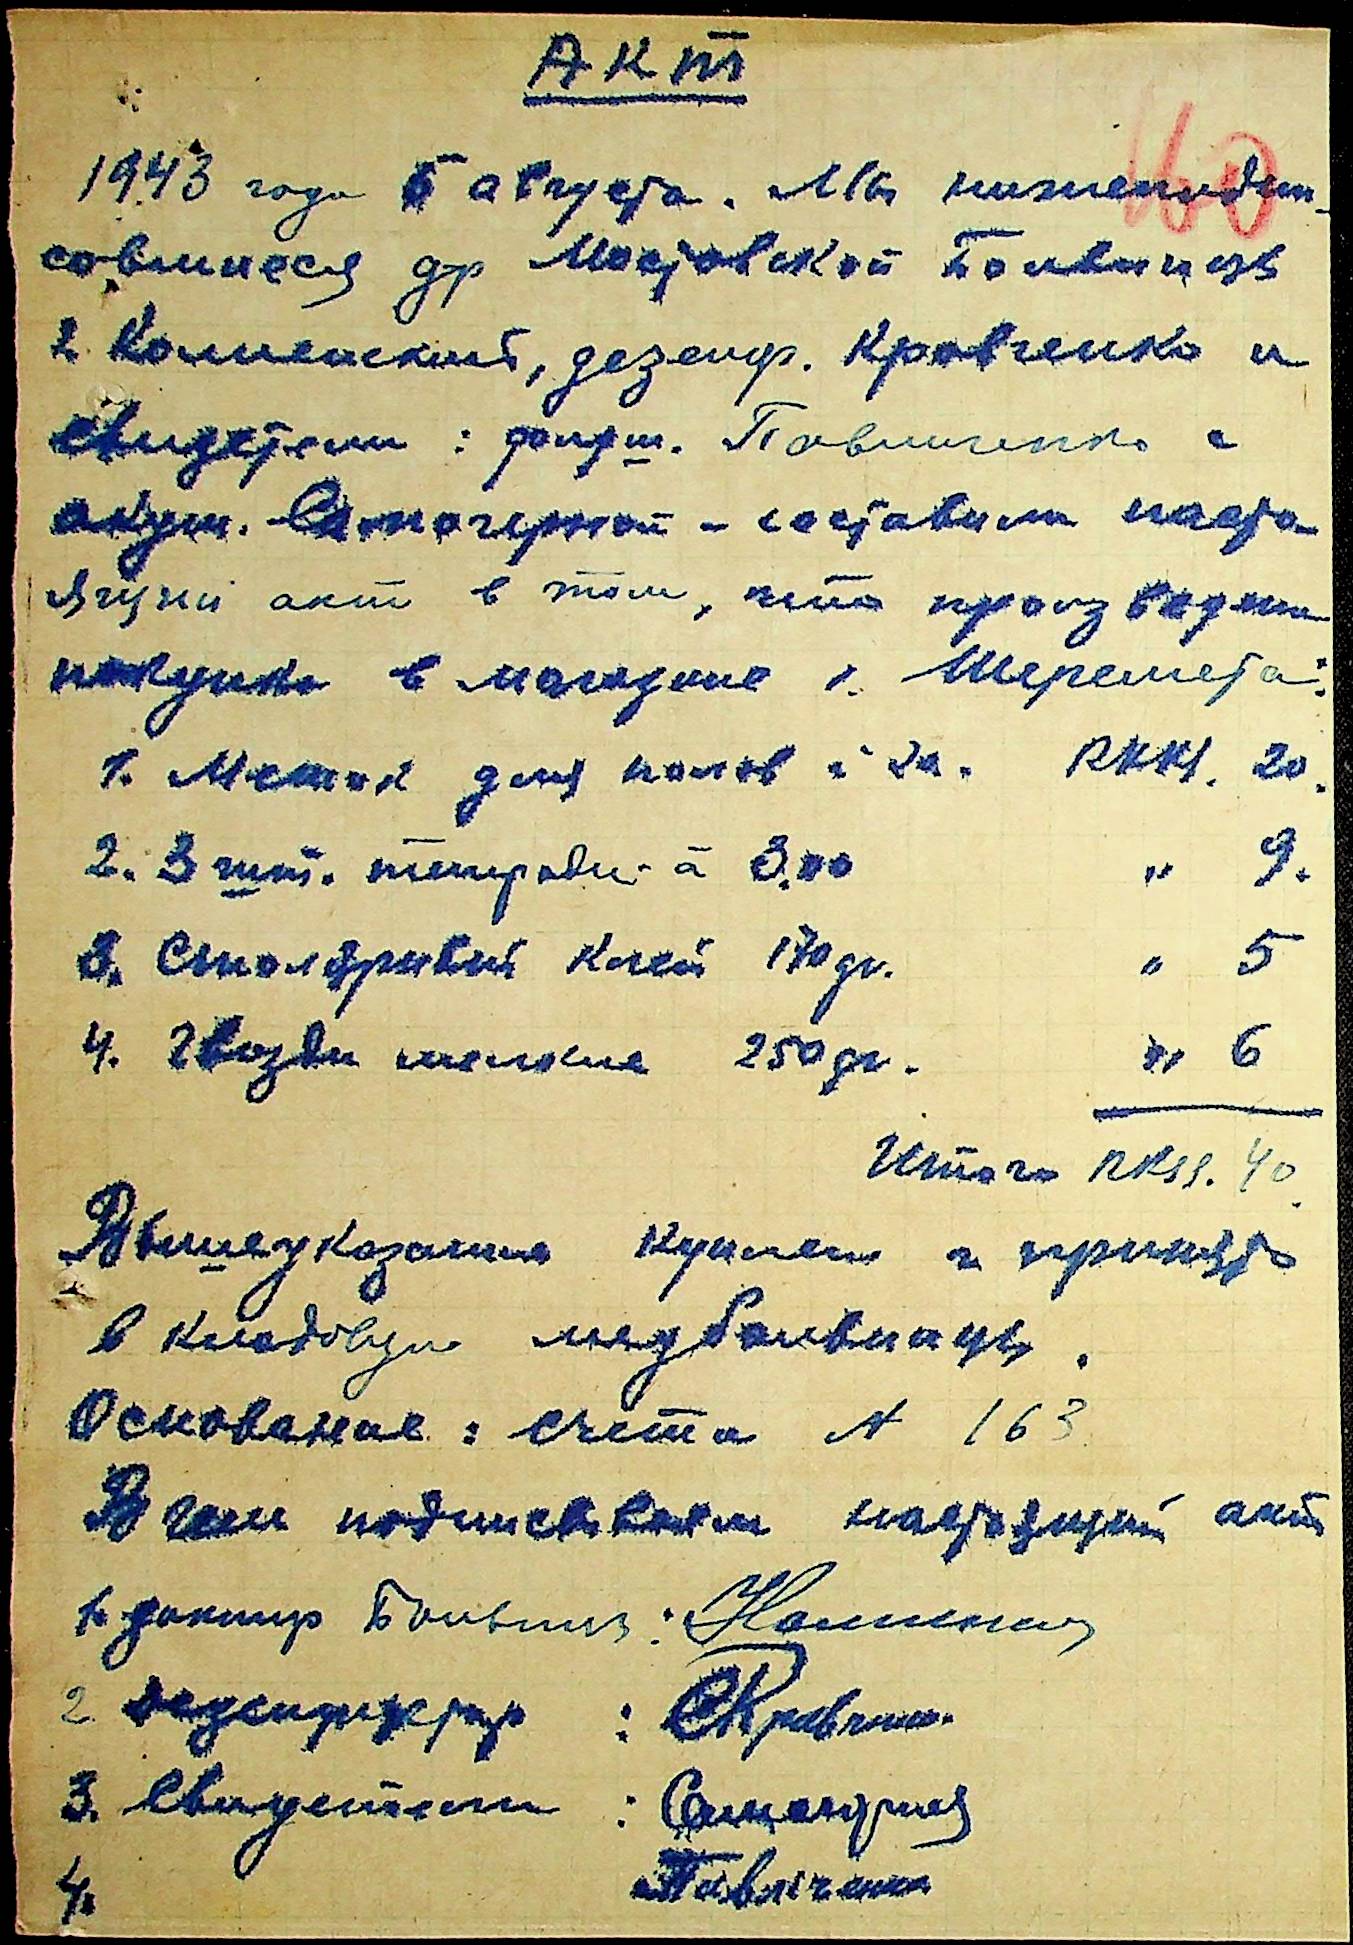 Акт
160
1943 года 5 августа. Мы нижеподпи-
савшиеся др Мостовской Больницы
г. Коменский, дезенф. Кравченко и
свидетели: фельдш. Павличенко и
акуш. Самочерной - составили насто-
ящий акт в том, что произведена
покупка в магазине г. Шеремета:
1. Мешок для полов 1 Ya. RKK. 20.
2. 3 шт. тетради à 3.00 " 9.
3. Столярный клей 170 gr. " 5
4. Гвозди мелкие 250 gr. " 6
Итого RKSS. 40.
Вышеуказанное куплено и принято
в кладовую медбольницы.
Основание: счета № 163
В чем подписываем настоящий акт
1. доктор Больницы:
2. дезенфектор : СКравченко
3. Свидетели :
4. Павличенко